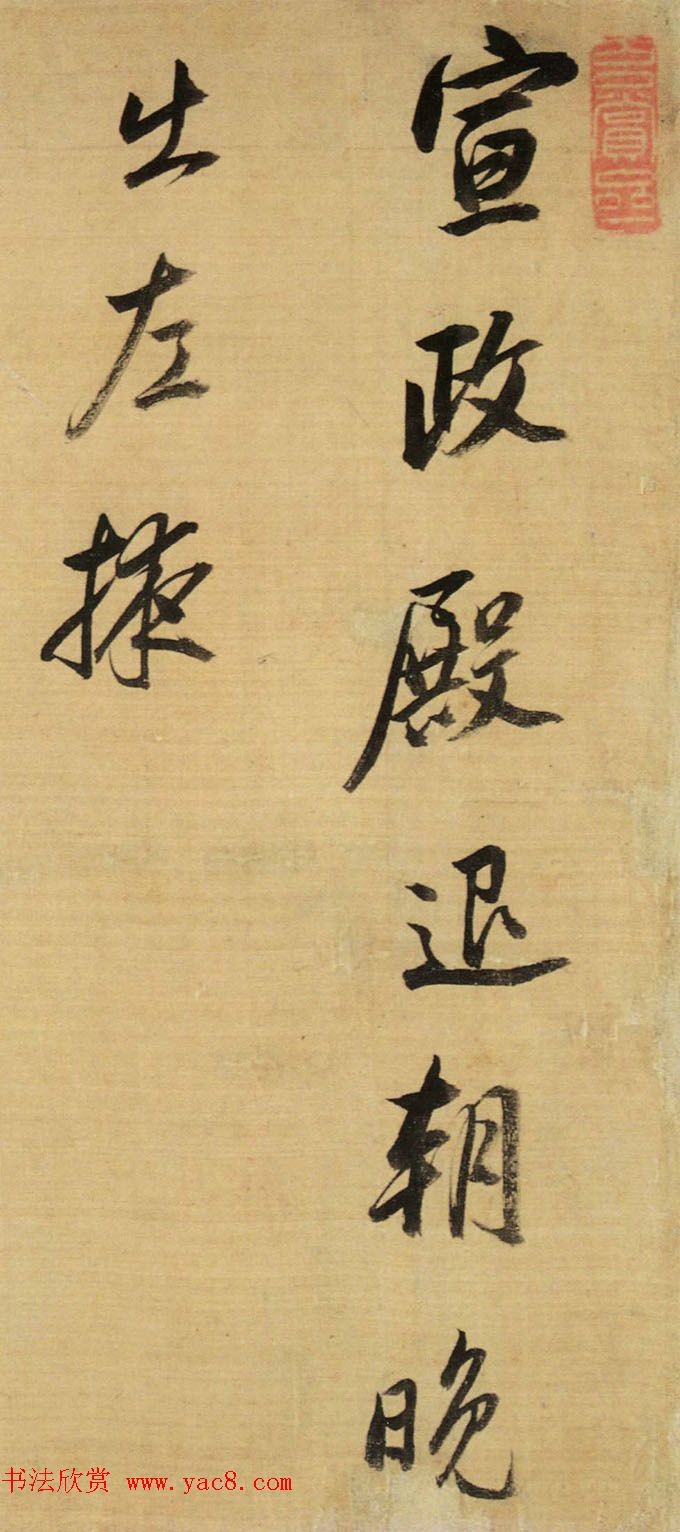 宣政殿退朝晚
出左掖
书法欣赏 www.yac8.com